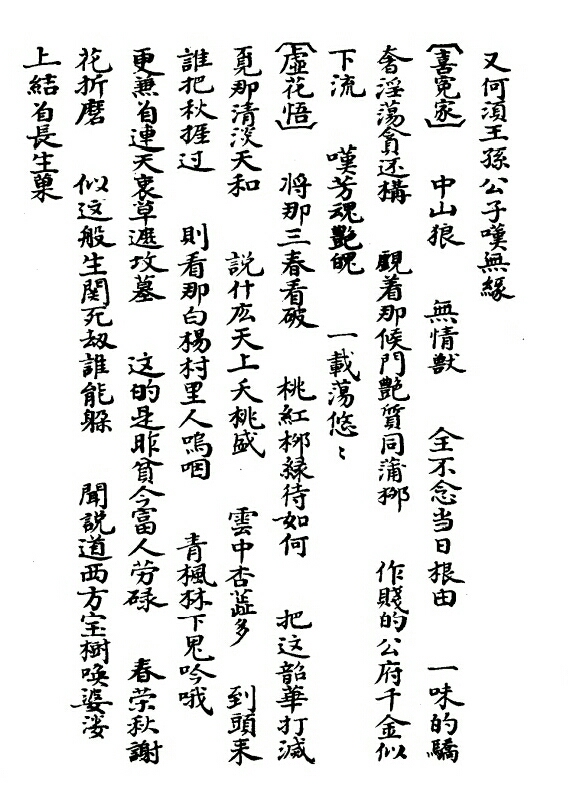 又何須王孫公子嘆無緣
【喜冤家】 中山狼 無情獸 全不念当日根由 一味的驕
奢淫蕩貪还構 覷着那候門艷質同蒲柳 作賤的公府千金似
下流 嘆芳魂艷魄 一載蕩悠〻
【虛花悟】 将那三春看破 桃紅柳緑待如何 把这韶華打滅
覓那清淡天和 說什庅天上夭桃盛 雲中杏蕋多 到頭来
誰把秋捱过 則看那白楊村里人嗚咽 青楓林下鬼吟哦
更兼自連天衰草遮坟墓 这的是昨貧今富人劳碌 春荣秋謝
花折磨 似这般生関死劫誰能躲 聞說道西方宝樹喚婆娑
上結自長生菓